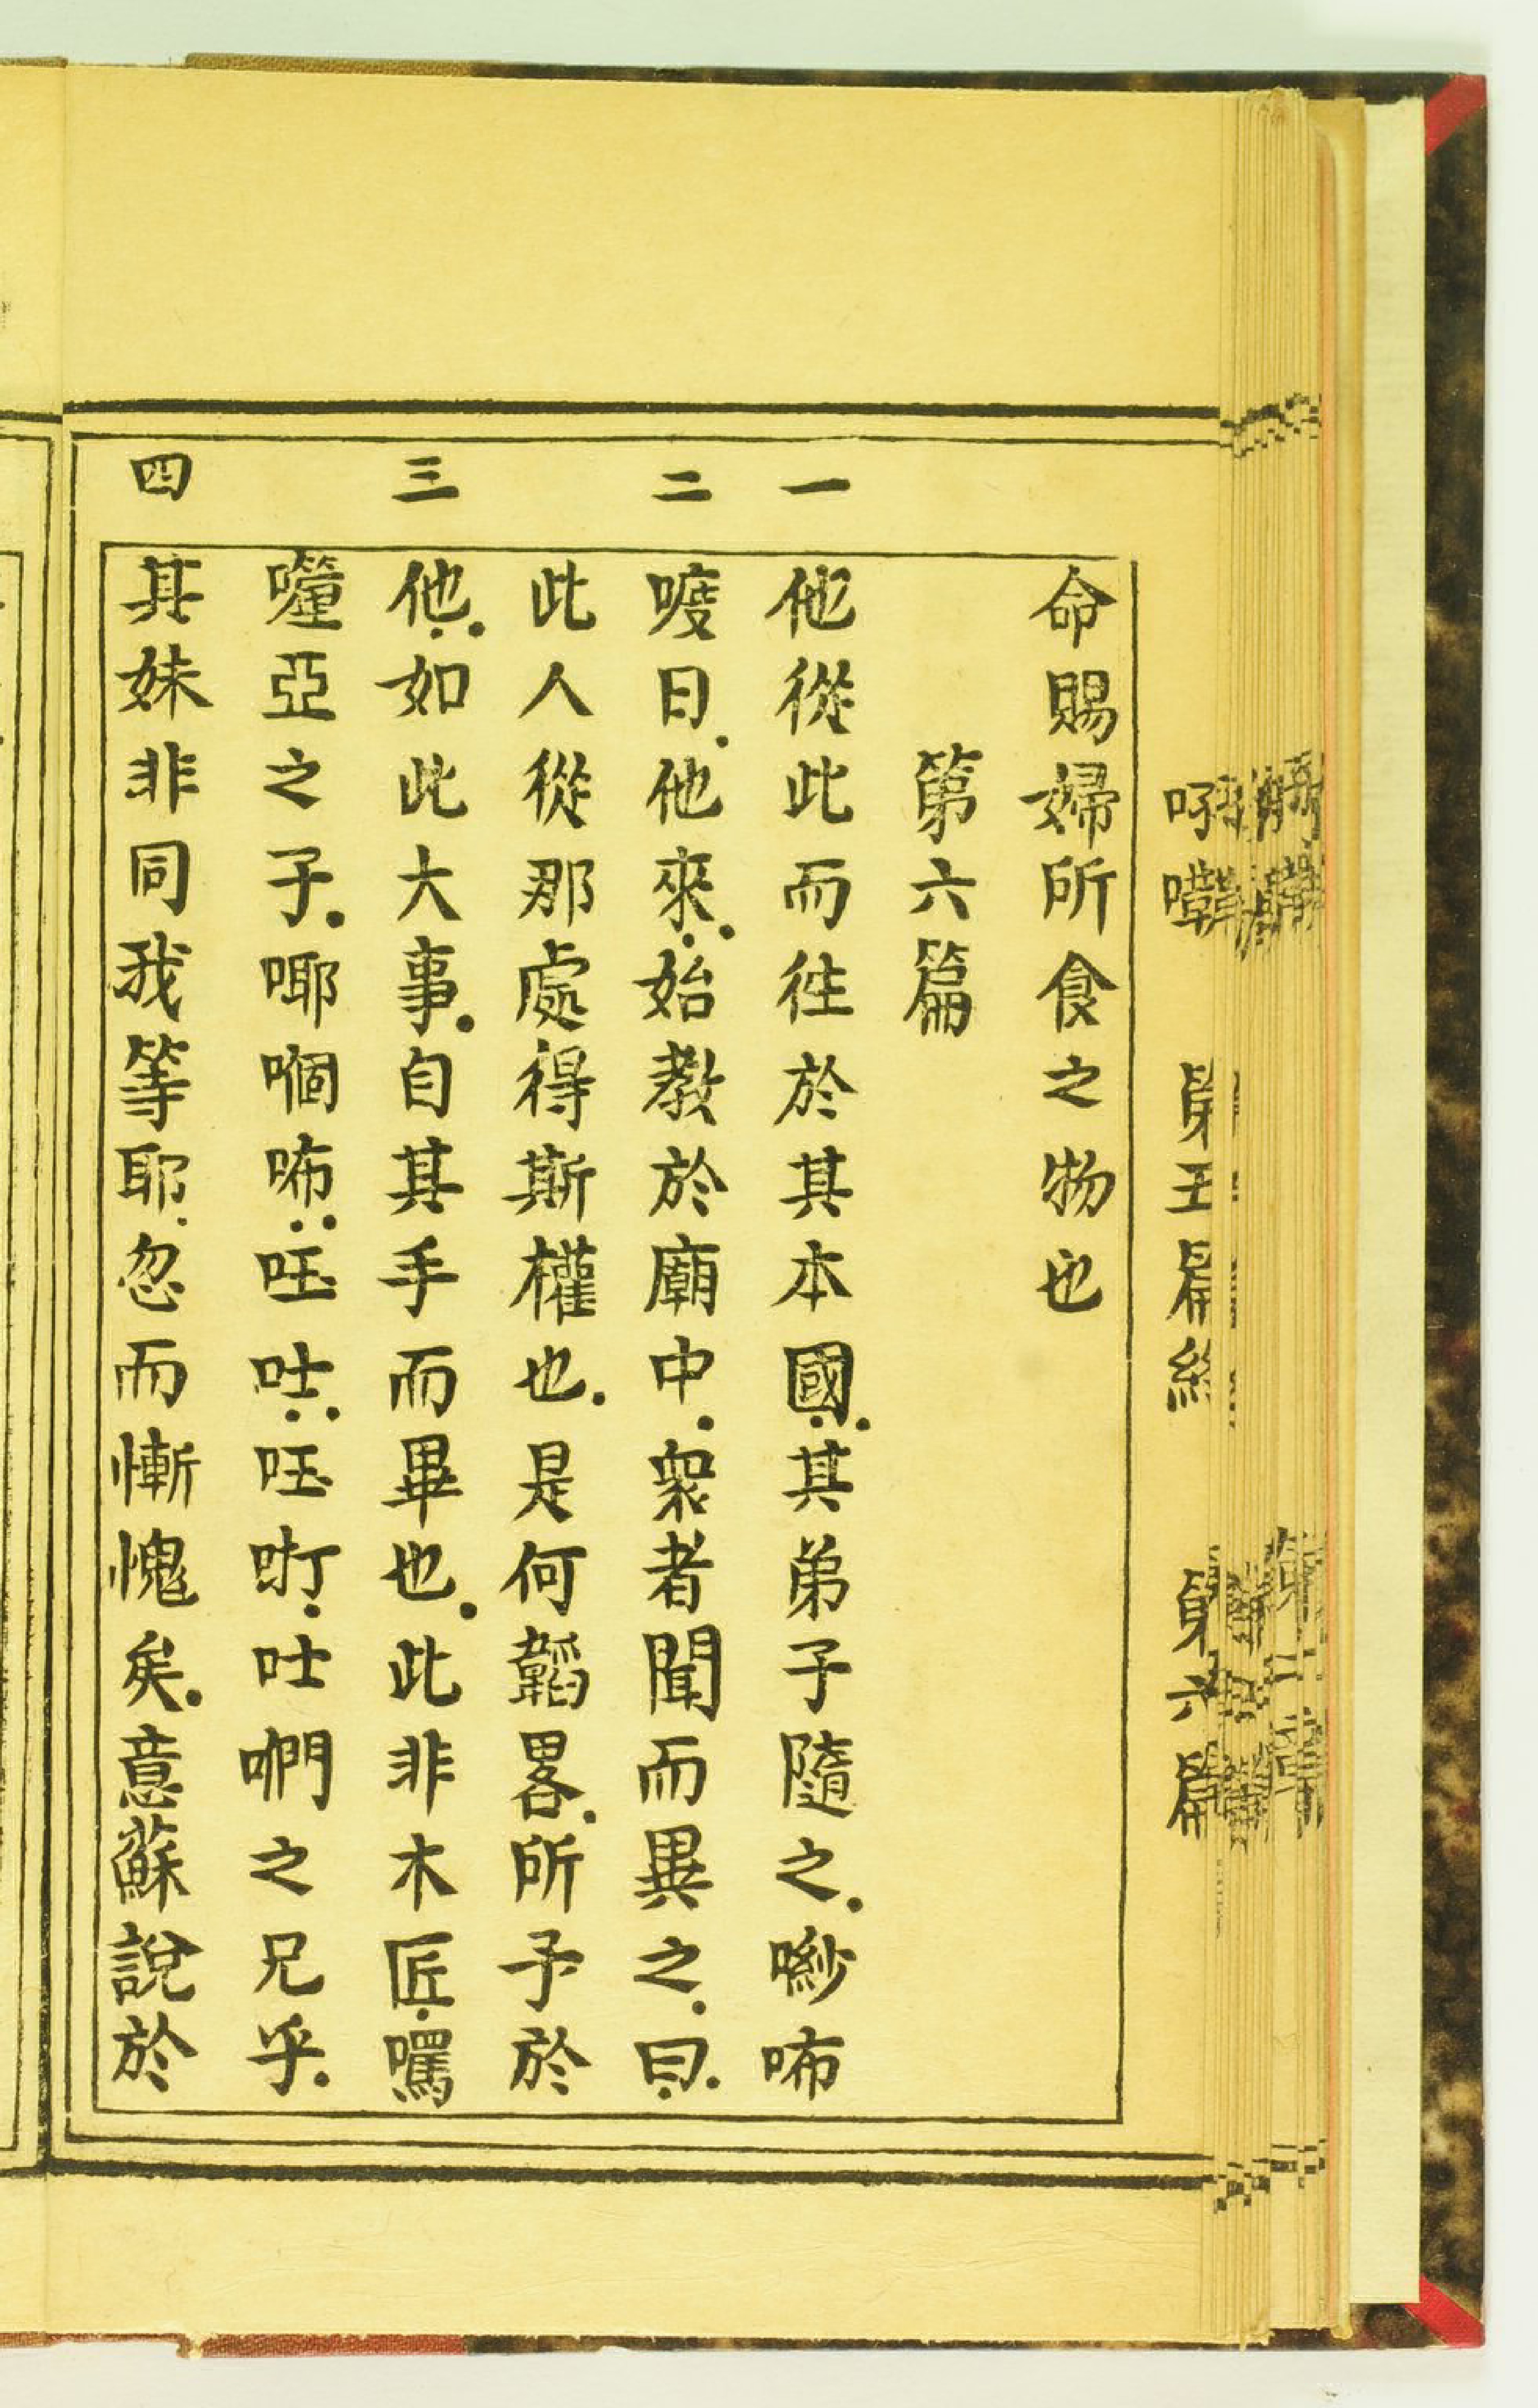 命賜婦所食之物也
第六篇
一
他從此而徃於其本國其弟子隨之
咘
二
曰他來始教於廟中衆者聞而異之曰
此人從那處得斯權也是何韜畧所予於
三
他如此大事自其手而畢也此非木匠
亞之子㖿咘吐吐之兄乎
四
其妹非同我等耶忽而慚愧矣意蘇說於
第五篇終
第六篇